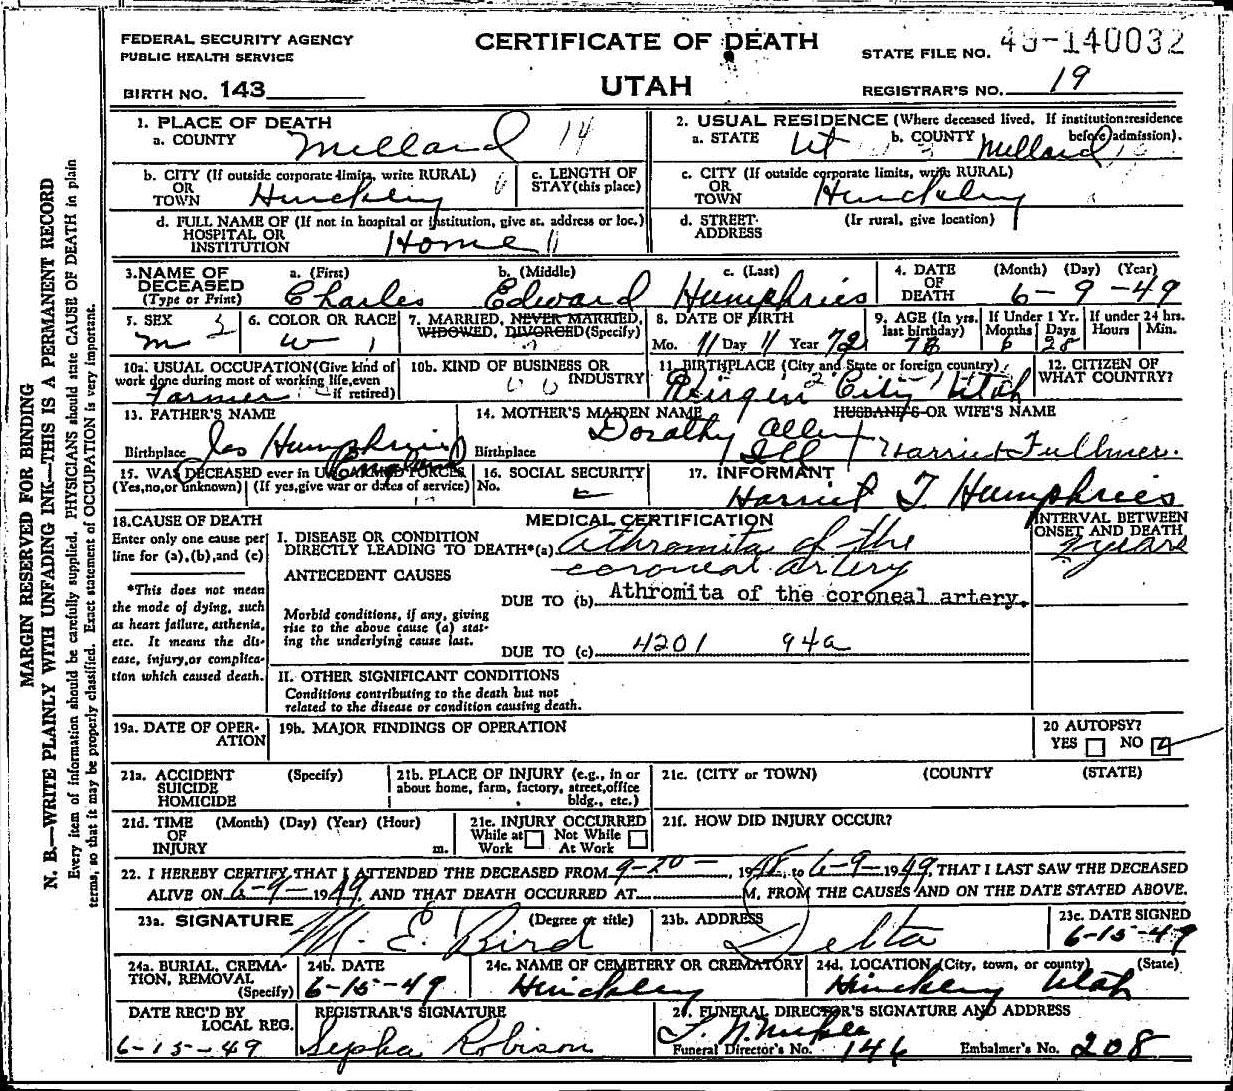 FEDERAL SECURITY AGENCY
PUBLIC HEALTH SERVICE
CERTIFICATE OF DEATH
UTAH
STATE FILE NO. 49-140032
BIRTH NO. 143
REGISTRAR'S NO. 19
MARGIN RESERVED FOR BINDING
N. B.—WRITE PLAINLY WITH UNFADING INK—THIS IS A PERMANENT RECORD
Every item of information should be carefully supplied. PHYSICIANS should state CAUSE OF DEATH in plain
terms, so that it may be properly classified. Exact statement of OCCUPATION is very important.
1. PLACE OF DEATH
a. COUNTY Millard 14
2. USUAL RESIDENCE (Where deceased lived. If institution:residence before admission).
a. STATE Ut b. COUNTY Millard
b. CITY (If outside corporate limits, write RURAL) OR TOWN Hinckley
c. LENGTH OF STAY (this place)
c. CITY (If outside corporate limits, write RURAL) OR TOWN Hinckley
d. FULL NAME OF (If not in hospital or institution, give st. address or loc.) HOSPITAL OR INSTITUTION Home
d. STREET ADDRESS (If rural, give location)
3. NAME OF DECEASED (Type or Print) a. (First) Charles b. (Middle) Edward c. (Last) Humphries
4. DATE OF DEATH (Month) (Day) (Year) 6-9-49
5. SEX m
6. COLOR OR RACE w 1
7. MARRIED, NEVER MARRIED, WIDOWED, DIVORCED (Specify)
8. DATE OF BIRTH Mo. 11 Day 11 Year 72
9. AGE (In yrs. last birthday) If Under 1 Yr. Months 6 Days 28 If under 24 hrs. Hours Min.
10a. USUAL OCCUPATION (Give kind of work done during most of working life, even if retired) Farmer
10b. KIND OF BUSINESS OR INDUSTRY
11. BIRTHPLACE (City and State or foreign country) City Utah
12. CITIZEN OF WHAT COUNTRY?
13. FATHER'S NAME Jas Humphries
Birthplace England
14. MOTHER'S MAIDEN NAME Dorathy Allen
Birthplace Ill
HUSBAND'S OR WIFE'S NAME
Harriet Fullmer.
15. WAS DECEASED ever in U.S. ARMED FORCES (Yes, no, or unknown) (If yes, give war or dates of service)
16. SOCIAL SECURITY No.
17. INFORMANT
Harriet F Humphries
18. CAUSE OF DEATH
Enter only one cause per line for (a), (b), and (c)
*This does not mean the mode of dying, such as heart failure, asthenia, etc. It means the disease, injury, or complication which caused death.
MEDICAL CERTIFICATION
INTERVAL BETWEEN ONSET AND DEATH
I. DISEASE OR CONDITION DIRECTLY LEADING TO DEATH*(a) Athromita of the
coroneal artery
2 years
ANTECEDENT CAUSES
DUE TO (b) Athromita of the coroneal artery.
Morbid conditions, if any, giving rise to the above cause (a) stating the underlying cause last.
DUE TO (c) 4201 94a
II. OTHER SIGNIFICANT CONDITIONS
Conditions contributing to the death but not related to the disease or condition causing death.
19a. DATE OF OPERATION
19b. MAJOR FINDINGS OF OPERATION
20 AUTOPSY?
YES NO
21a. ACCIDENT SUICIDE HOMICIDE (Specify)
21b. PLACE OF INJURY (e.g., in or about home, farm, factory, street, office bldg., etc.)
21c. (CITY or TOWN) (COUNTY) (STATE)
21d. TIME OF INJURY (Month) (Day) (Year) (Hour) m.
21e. INJURY OCCURRED While at Work Not While At Work
21f. HOW DID INJURY OCCUR?
22. I HEREBY CERTIFY THAT I ATTENDED THE DECEASED FROM 9-20-, 1948, to 6-9-1949, THAT I LAST SAW THE DECEASED
ALIVE ON 6-9-1949, AND THAT DEATH OCCURRED AT M. FROM THE CAUSES AND ON THE DATE STATED ABOVE.
23a. SIGNATURE (Degree or title) M. E. Bird
23b. ADDRESS Delta
23c. DATE SIGNED 6-15-49
24a. BURIAL, CREMATION, REMOVAL (Specify)
24b. DATE 6-15-49
24c. NAME OF CEMETERY OR CREMATORY Hinckley
24d. LOCATION (City, town, or county) (State) Hinckley Utah
DATE REC'D BY LOCAL REG. 6-15-49
REGISTRAR'S SIGNATURE Robison
25. FUNERAL DIRECTOR'S SIGNATURE AND ADDRESS
Funeral Director's No. 146 Embalmer's No. 208